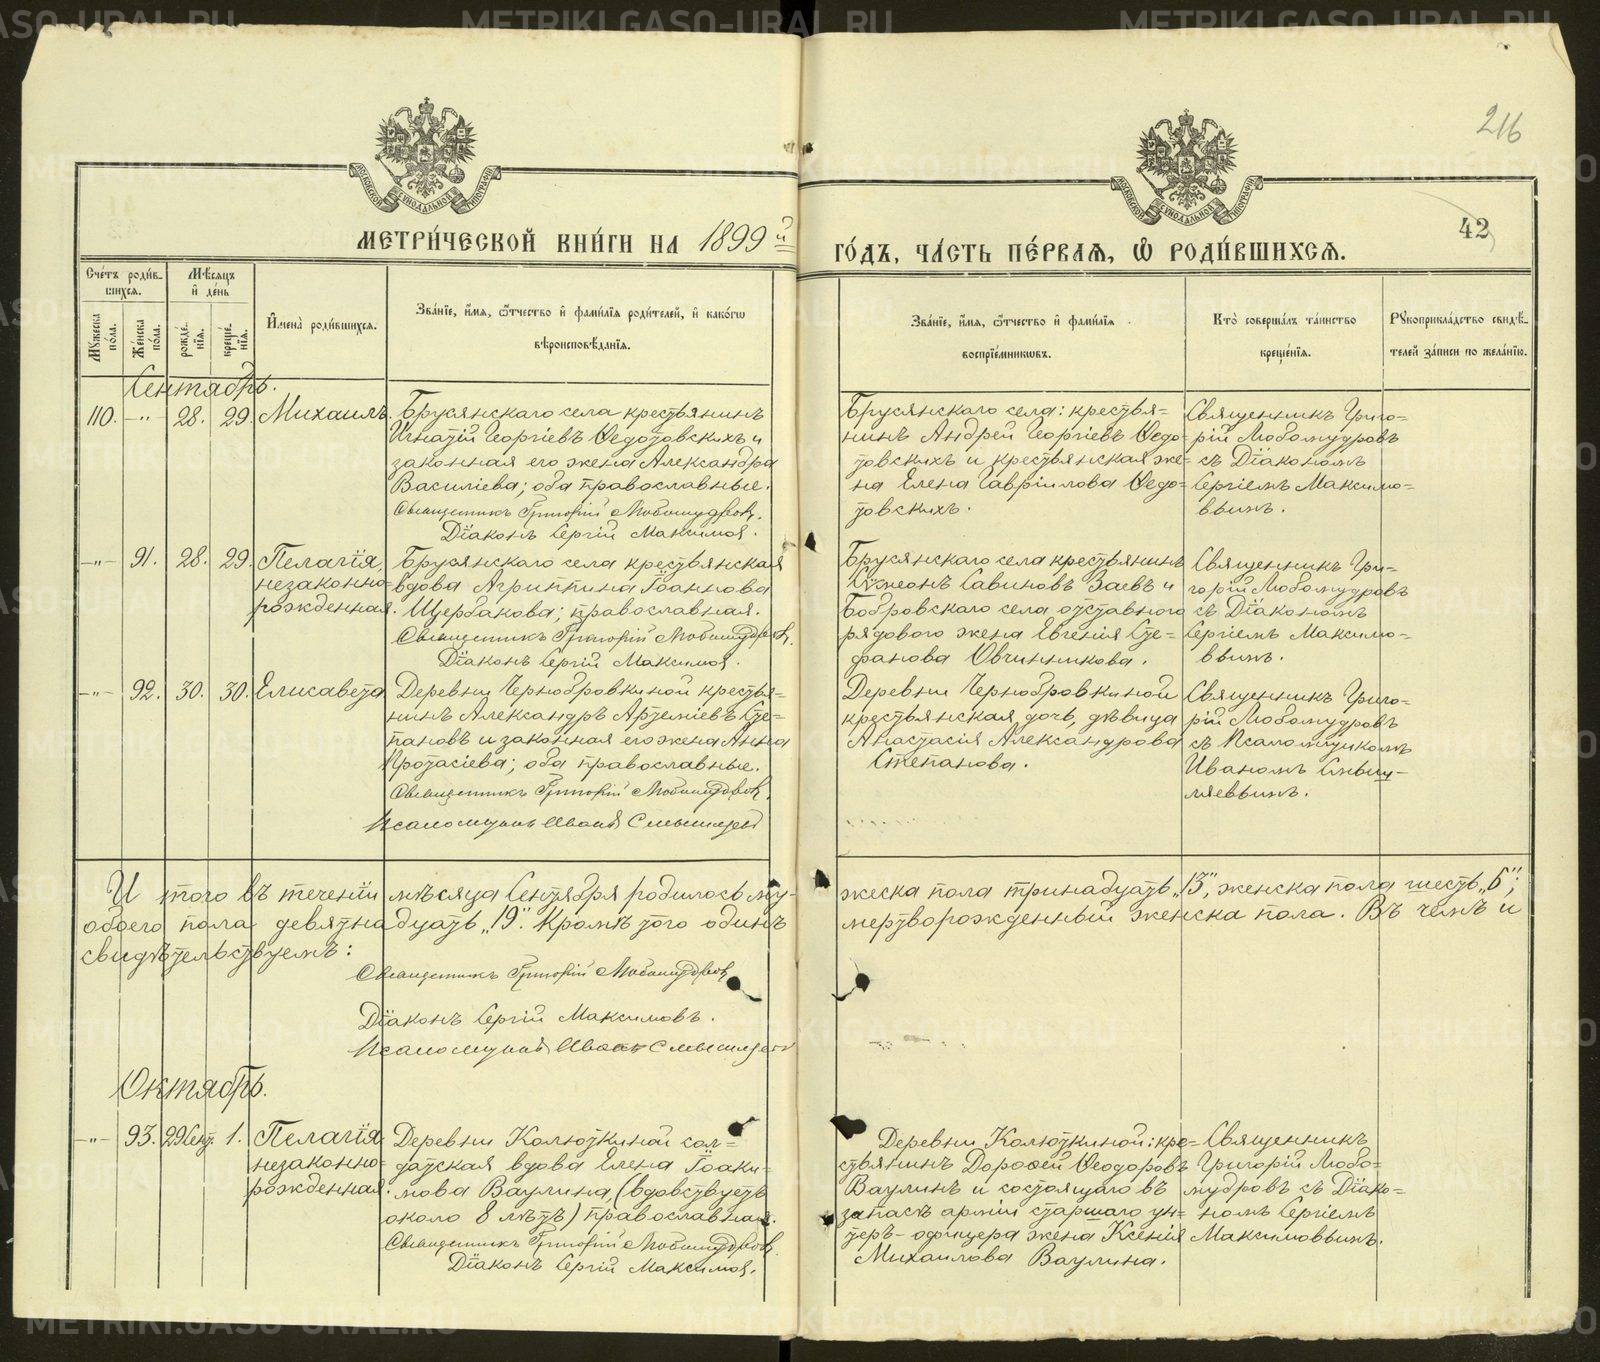 216
МЕТРИ́ЧЕСКОЙ КНИ́ГИ НА 1899 й
ГО́ДЪ, ЧА́СТЬ ПЕ́РВАѦ, Ѡ҆ РОДИ́ВШИХСѦ.
42
Сче́тъ роди́в-
шихсѧ.
Мꙋжеска по́ла.
Же́нска по́ла.
Мѣ́сѧцъ и҆ де́нь
рожде́нїѧ.
креще́нїѧ.
И҆мена̀ роди́вшихсѧ.
Зва́нїе, и҆́мѧ, ѻ҆́тчество и҆ фами́лїѧ роди́телей, и҆ како́гѡ
вѣроисповѣ́данїѧ.
Зва́нїе, и҆́мѧ, ѻ҆́тчество и҆ фами́лїѧ
воспрїе́мниковъ.
Кто̀ соверша́лъ та́инство
креще́нїѧ.
Рꙋкоприкла́дство свидѣ́-
телей за́писи по жела́нїю.
Сентябрь.
110. -"- 28. 29. Михаилъ.
Брусянскаго села крестьянинъ
Игнатій Георгіевъ Ѳедотовскихъ и
законная его жена Александра
Василіева; оба православные.
Священникъ Григорій Любомудровъ.
Діаконъ Сергій Максимов.
Брусянскаго села: крестья-
нинъ Андрей Георгіевъ Ѳедо-
товскихъ и крестьянская же-
на Елена Гавріилова Ѳедо-
товскихъ.
Священникъ Григо-
рій Любомудровъ
съ Діакономъ
Сергіемъ Максимо-
вымъ.
-"- 91. 28. 29. Пелагія,
незаконно-
рожденная.
Брусянскаго села крестьянская
вдова Агриппина Іоаннова
Щербакова; православная.
Священникъ Григорій Любомудровъ.
Діаконъ Сергій Максимов.
Брусянскаго села крестьянинъ
Сѵмеонъ Савиновъ Заевъ и
Бобровскаго села отставного
рядового жена Евгенія Сте-
фанова Овчинникова.
Священникъ Гри-
горій Любомудровъ
съ Діакономъ
Сергіемъ Максимо-
вымъ.
-"- 92. 30. 30. Елисавета
Деревни Чернобровкиной крестья-
нинъ Александръ Артеміевъ Сте-
пановъ и законная его жена Анна
Протасіева; оба православные.
Священникъ Григорій Любомудровъ.
Псаломщикъ Иванъ Смышляевъ
Деревни Чернобровкиной
крестьянская дочь, дѣвица
Анастасія Александрова
Степанова.
Священникъ Григо-
рій Любомудровъ
съ Псаломщикомъ
Иваномъ Смыш-
ляевымъ.
И того въ теченіи мѣсяца Сентября родилось му-
жеска пола тринадцать „13", женска пола шесть „6";
обоего пола девятнадцать „19". Кромѣ того одинъ
мертворожденный женска пола. Въ чемъ и
свидѣтельствуемъ:
Священникъ Григорій Любомудровъ
Діаконъ Сергій Максимовъ.
Псаломщикъ Иванъ Смышляевъ
Октябрь.
-"- 93. 29 Сент. 1. Пелагія
незаконно-
рожденная.
Деревни Колюткиной сол-
датская вдова Елена Іоаки-
мова Ваулина, (вдовствуетъ
около 8 лѣтъ) православная.
Священникъ Григорій Любомудровъ.
Діаконъ Сергій Максимов.
Деревни Колюткиной: кре-
стьянинъ Дороѳей Ѳеодоровъ
Ваулинъ и состоящаго въ
запасѣ арміи старшаго ун-
теръ-офицера жена Ксенія
Михаилова Ваулина.
Священникъ
Григорій Любо-
мудровъ съ Діако-
номъ Сергіемъ
Максимовымъ.